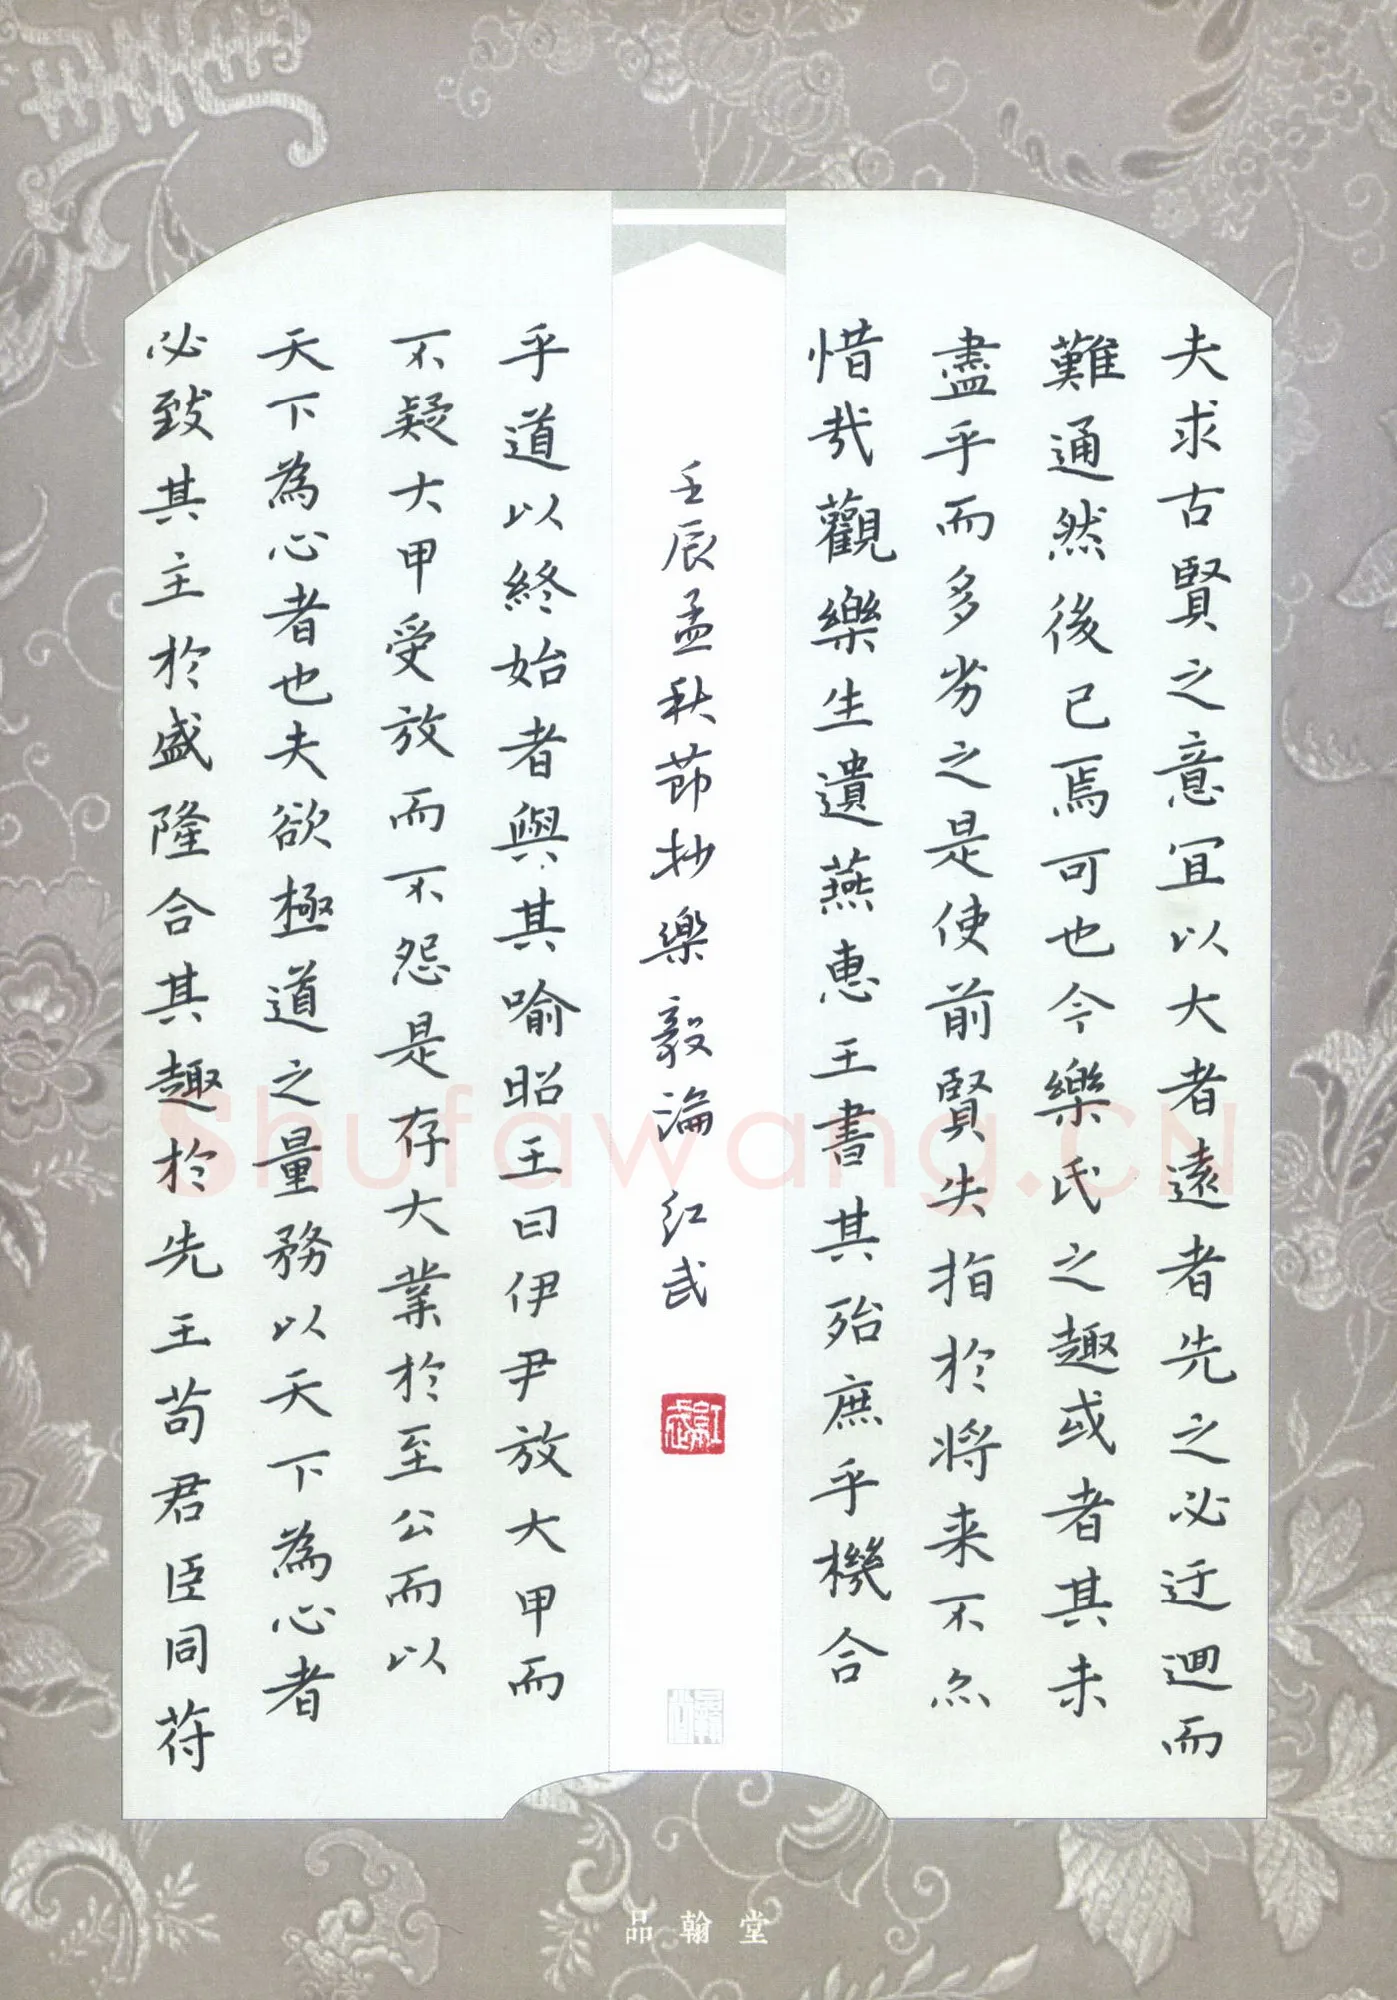 夫求古賢之意宜以大者遠者先之必迂迴而
難通然後已焉可也今樂氏之趣或者其未
盡乎而多劣之是使前賢失指於將来不亦
惜哉觀樂生遺燕惠王書其殆庶乎機合
乎道以終始者與其喻昭王曰伊尹放大甲而
不疑大甲受放而不怨是存大業於至公而以
天下為心者也夫欲極道之量務以天下為心者
必致其主於盛隆合其趣於先王苟君臣同苻
壬辰孟秋節抄樂毅論 紅武
紅武
品翰堂
Shufawang.CN